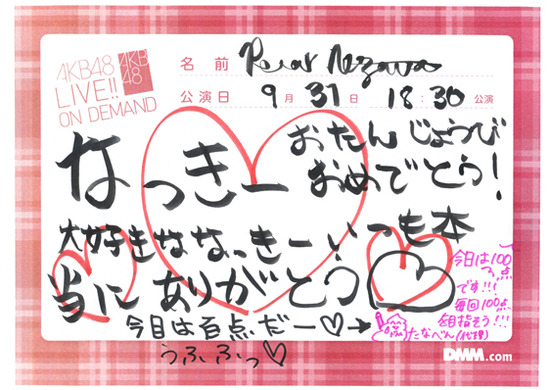 AKB48
LIVE!!
ON DEMAND
AKB
48
名前
公演日 9月 31日 18:30公演
おたんじょうび
おめでとう!
なっきー
大好きななっきーいつも本
当にありがとう
今日は百点だー♡→
うふふっ♡
今日は100
点
です!!!
毎回100点
を目指そう!!!
たなべん(代理)
DMM.com